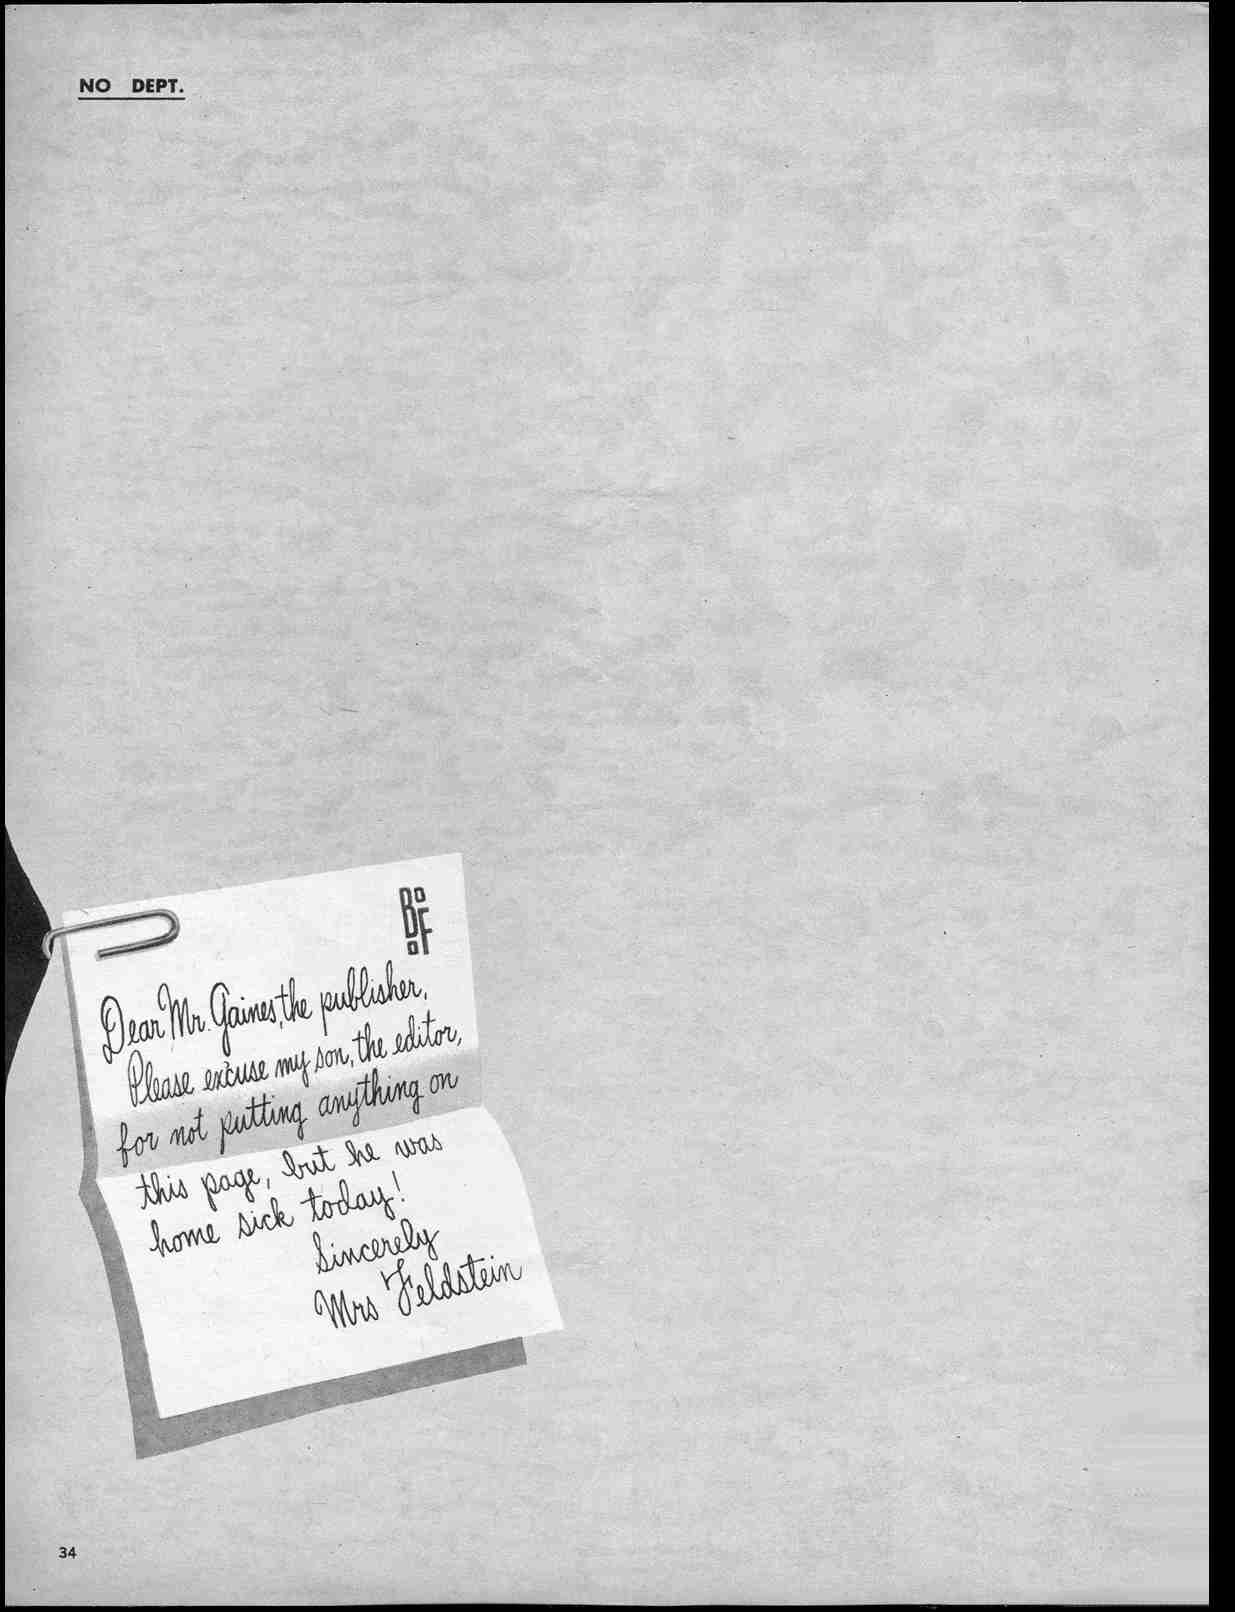 NO DEPT.
BoF
oF
Dear Mr. Gaines, the publisher,
Please excuse my son, the editor,
for not putting anything on
this page, but he was
home sick today!
Sincerely
Mrs Feldstein
34